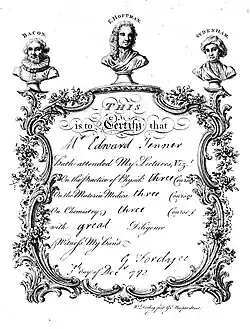 F. HOFFMAN.
BACON.
SYDENHAM.
THIS
is to Certify that
Mr. Edward Jenner
Hath attended My Lectures, Viz.
On the Practice of Physick three Courses
On the Materia Medica three Courses
On Chemistry three Courses
with great Diligence
Witness My Hand
G. Fordyce
day of Decr. 1792